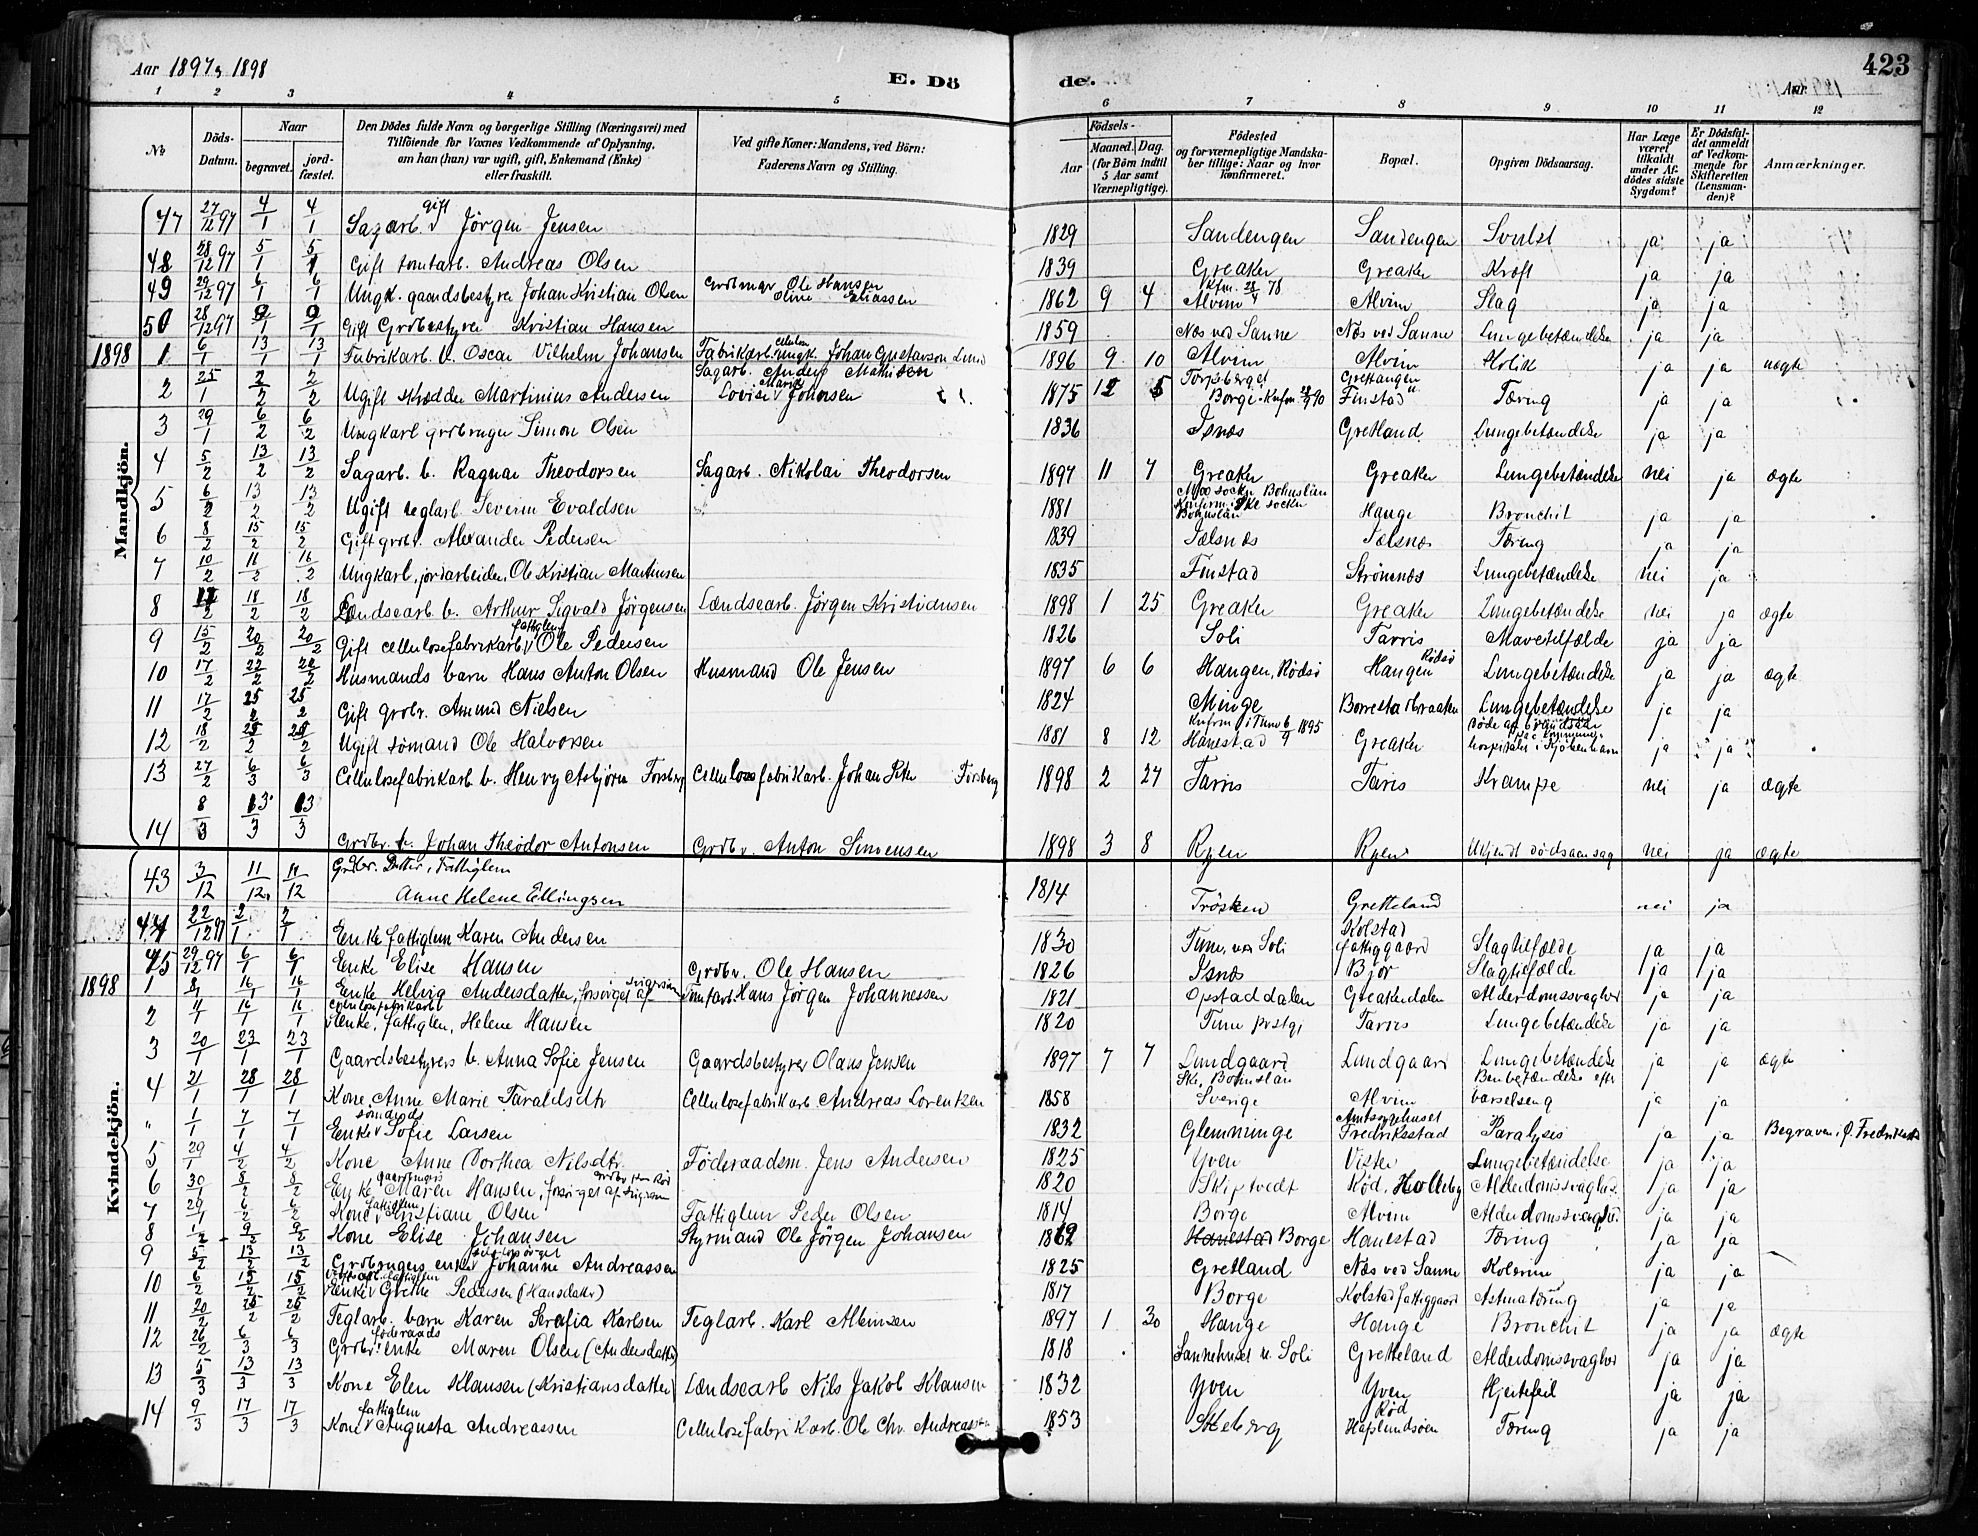 Aar 1897 & 1898
E. Dö
de.
423
Aar
1 2 3 4 5 6 7 8 9 10 11 12
No.
Döds-Datum.
Naar
begravet.
jordfæstet.
Den Dödes fulde Navn og borgerlige Stilling (Næringsvei) med Tilföiende for Voxnes Vedkommende af Oplysning, om han (hun) var ugift, gift, Enkemand (Enke) eller fraskilt.
Ved gifte Koner: Mandens, ved Börn: Faderens Navn og Stilling.
Födsels-
Aar
Maaned.
Dag.
(for Börn indtil 5 Aar samt Værnepligtige).
Födested og for værnepligtige Mandskaber tillige: Naar og hvor konfirmeret.
Bopæl.
Opgiven Dödsaarsag.
Har Læge været tilkaldt under Afdödes sidste Sygdom?
Er Dödsfaldet anmeldt af Vedkommende for Skifteretten (Lensmanden)?
Anmærkninger.
Mandkjön.
47 27/12 97 4/1 4/1 Sagarb. gift Jørgen Jensen 1829 Sandengen Sandengen Svulst ja ja
48 28/12 97 5/1 5/1 Gift tomtarb. Andreas Olsen 1839 Greaker Greaker Kræft ja ja
49 29/12 97 6/1 6/1 Ungk. gaardsbestyrer Johan Kristian Olsen Ole Hansen Eliassen 1862 9 4 Alvim Alvim Slag ja ja
50 28/12 97 9/1 9/1 Gift Grdbestyrer Kristian Hansen 1859 Næs ved Sanne Næs ved Sanne Lungebetændelse ja ja
1898 1 6/1 13/1 13/1 Fabrikarb. b. Oscar Vilhelm Johansen Fabrikarb. ungk. Johan Gustavson Lund 1896 9 10 Alvim Alvim Kolik ja ja uægte
2 25/1 2/2 2/2 Ugift skrædder Martinius Andersen Sagarb. Anders Mathisen Lovise Marie Johnsen 1875 12 5 Torpeberget Borge Finstad Tæring ja ja
3 29/1 6/2 6/2 Ungkarl grdbruger Simon Olsen 1836 Isnæs Gretland Lungebetændelse ja ja
4 5/2 13/2 13/2 Sagarb. b. Ragnar Theodorsen Sagarb. Nikolai Theodorsen 1897 11 7 Greaker Greaker Lungebetændelse nei ja ægte
5 6/2 13/2 13/2 Ugift teglarb. Severin Evaldsen 1881 socken Bohuslän Konfirm. i Ske socken Bohuslän Hauge Bronchit ja ja
6 8/2 15/2 15/2 Gift grdbr. Alexander Pedersen 1839 Tælsnæs Tælsnæs Tæring ja ja
7 10/2 16/2 16/2 Ungkarl, jordarbeider, Ole Kristian Martinsen 1835 Finstad Strömnæs Lungebetændelse nei ja
8 18/2 18/2 Lændsearb b. Arthur Sigvald Jörgensen Lændsearb. Jörgen Kristiansen 1898 1 25 Greaker Greaker Lungebetændelse nei ja ægte
9 15/2 20/2 20/2 Gift cellulosefabrikarb. fattiglem Ole Pedersen 1826 Soli Tarris Mavetilfælde ja ja
10 17/2 22/2 22/2 Husmands barn Hans Anton Olsen Husmand Ole Jensen 1897 6 6 Haugen, Rödsö Haugen Rödsö Lungebetændelse ja ja ægte
11 17/2 25/2 25/2 Gift grdbr. Amund Nielsen 1824 Minge Borrestadbraaten Lungebetændelse ja ja
12 18/2 25/2 25/2 Ugift sömand Ole Halvorsen 1881 8 12 Hanestad Knfrm i Tune 6/9 1895 Greaker hospitalet i Kjöbenhavn ja ja
13 27/2 6/3 6/3 Cellulosefabrikarb. b. Henry Asbjörn Forsberg Cellulosefabrikarb. Johan Peter Forsberg 1898 2 27 Tarris Taris Krampe nei ja ægte
14 8/3 13/3 13/3 Grdbr. b. Johan Theodor Antonsen Grdbr. Anton Simensen 1898 3 8 Ryen Ryen Ukjendt dödsaarsag nei ja ægte
Kvindekjön.
43 3/12 11/12 11/12 Grdbr. Datter, Fattiglem Anne Helene Ellingsen 1814 Tröskem Gretteland nei ja
44 22/12 97 2/1 2/1 Enke fattiglem Karen Andersen 1830 Tune, ved Soli Kolstad fattiggaard Slagtilfælde ja ja
45 29/12 97 6/1 6/1 Enke Elise Hansen Grdbr. Ole Hansen 1826 Isnæs Bjor Slagtilfælde ja ja
1898 1 8/1 16/1 16/1 Enke Helvig Andersdatter, forsörget af svigersön Tomtarb. Hans Jörgen Johannessen 1821 Opstaddalen Greakerdalen Alderdomssvaghed ja ja
2 11/1 16/1 16/1 Cellulosefabrikarb. Enke, fattiglem, Helene Hansen 1820 Tune prstgj Tarris Lungebetændelse ja ja
3 20/1 23/1 23/1 Gaardsbestyrers b. Anna Sofie Jensen Gaardsbestyrer Olaus Jensen 1897 7 7 Lundgaard Lundgaard Lungebetændelse ja ja ægte
4 21/1 28/1 28/1 Kone Anne Marie Taraldsdtr Cellulosefabrikarb Andreas Lorentzen 1858 Ske, Bohuslän Sverige Alvim Benbetændelse efter barselseng ja ja
" 1/1 7/1 7/1 Enke sömands Sofie Larsen 1832 Glemminge Amtssygehuset Fredriksstad Paralysis ja ja Begraven i Ø. Fredrikstad
5 29/1 4/2 4/2 Kone Anne Dorthea Nilsdtr. Föderaadsm. Jens Andersen 1825 Yven Vister Lungebetændelse ja ja
6 30/1 8/2 8/2 Enke Maren Hansen, forsörget af svigersön 1820 Skiptvedt Röd, Holleby Alderdomssvaghed ja ja
7 29/1 6/2 6/2 Kone fattiglem Kristiane Olsen Fattiglem Peder Olsen 1814 Borge Alvim Alderdomssvaghed ja ja
8 1/2 9/2 9/2 Kone Elise Johansen Styrmand Ole Jörgen Johansen 1862 Hanestad Borge Hanestad Tæring ja ja
9 5/2 13/2 13/2 Grdbrugers enke Johanne Andreassen 1825 Gretland Næs ved Sanne Kolerine ja ja
10 6/2 15/2 15/2 Enke fattiglem Grethe Pedersen (Hansdatter) 1817 Borge Kolstad fattiggaard Astma Tæring ja ja
11 20/2 25/2 25/2 Teglarb. barn Karen Serafia Karlsen Teglarb. Karl Albinsen 1897 1 30 Hauge Hauge Bronchit ja ja ægte
12 26/2 6/3 6/3 Grdbr. föderaads enke Maren Olsen (Andersdatter) 1818 Sannehuset u. Soli Gretteland Alderdomssvaghed ja ja
13 5/3 13/3 13/3 Kone Elen Klausen (Kristiansdatter) Lændsearb Nils Jakob Klausen 1832 Yven Yven Hjertefeil ja ja
14 9/3 17/3 17/3 Kone fattiglem Augusta Andreassen Cellulosefabrikarb. Ole Chr. Andreassen 1853 Skeberg Röd Hafslundsöen Tæring ja ja